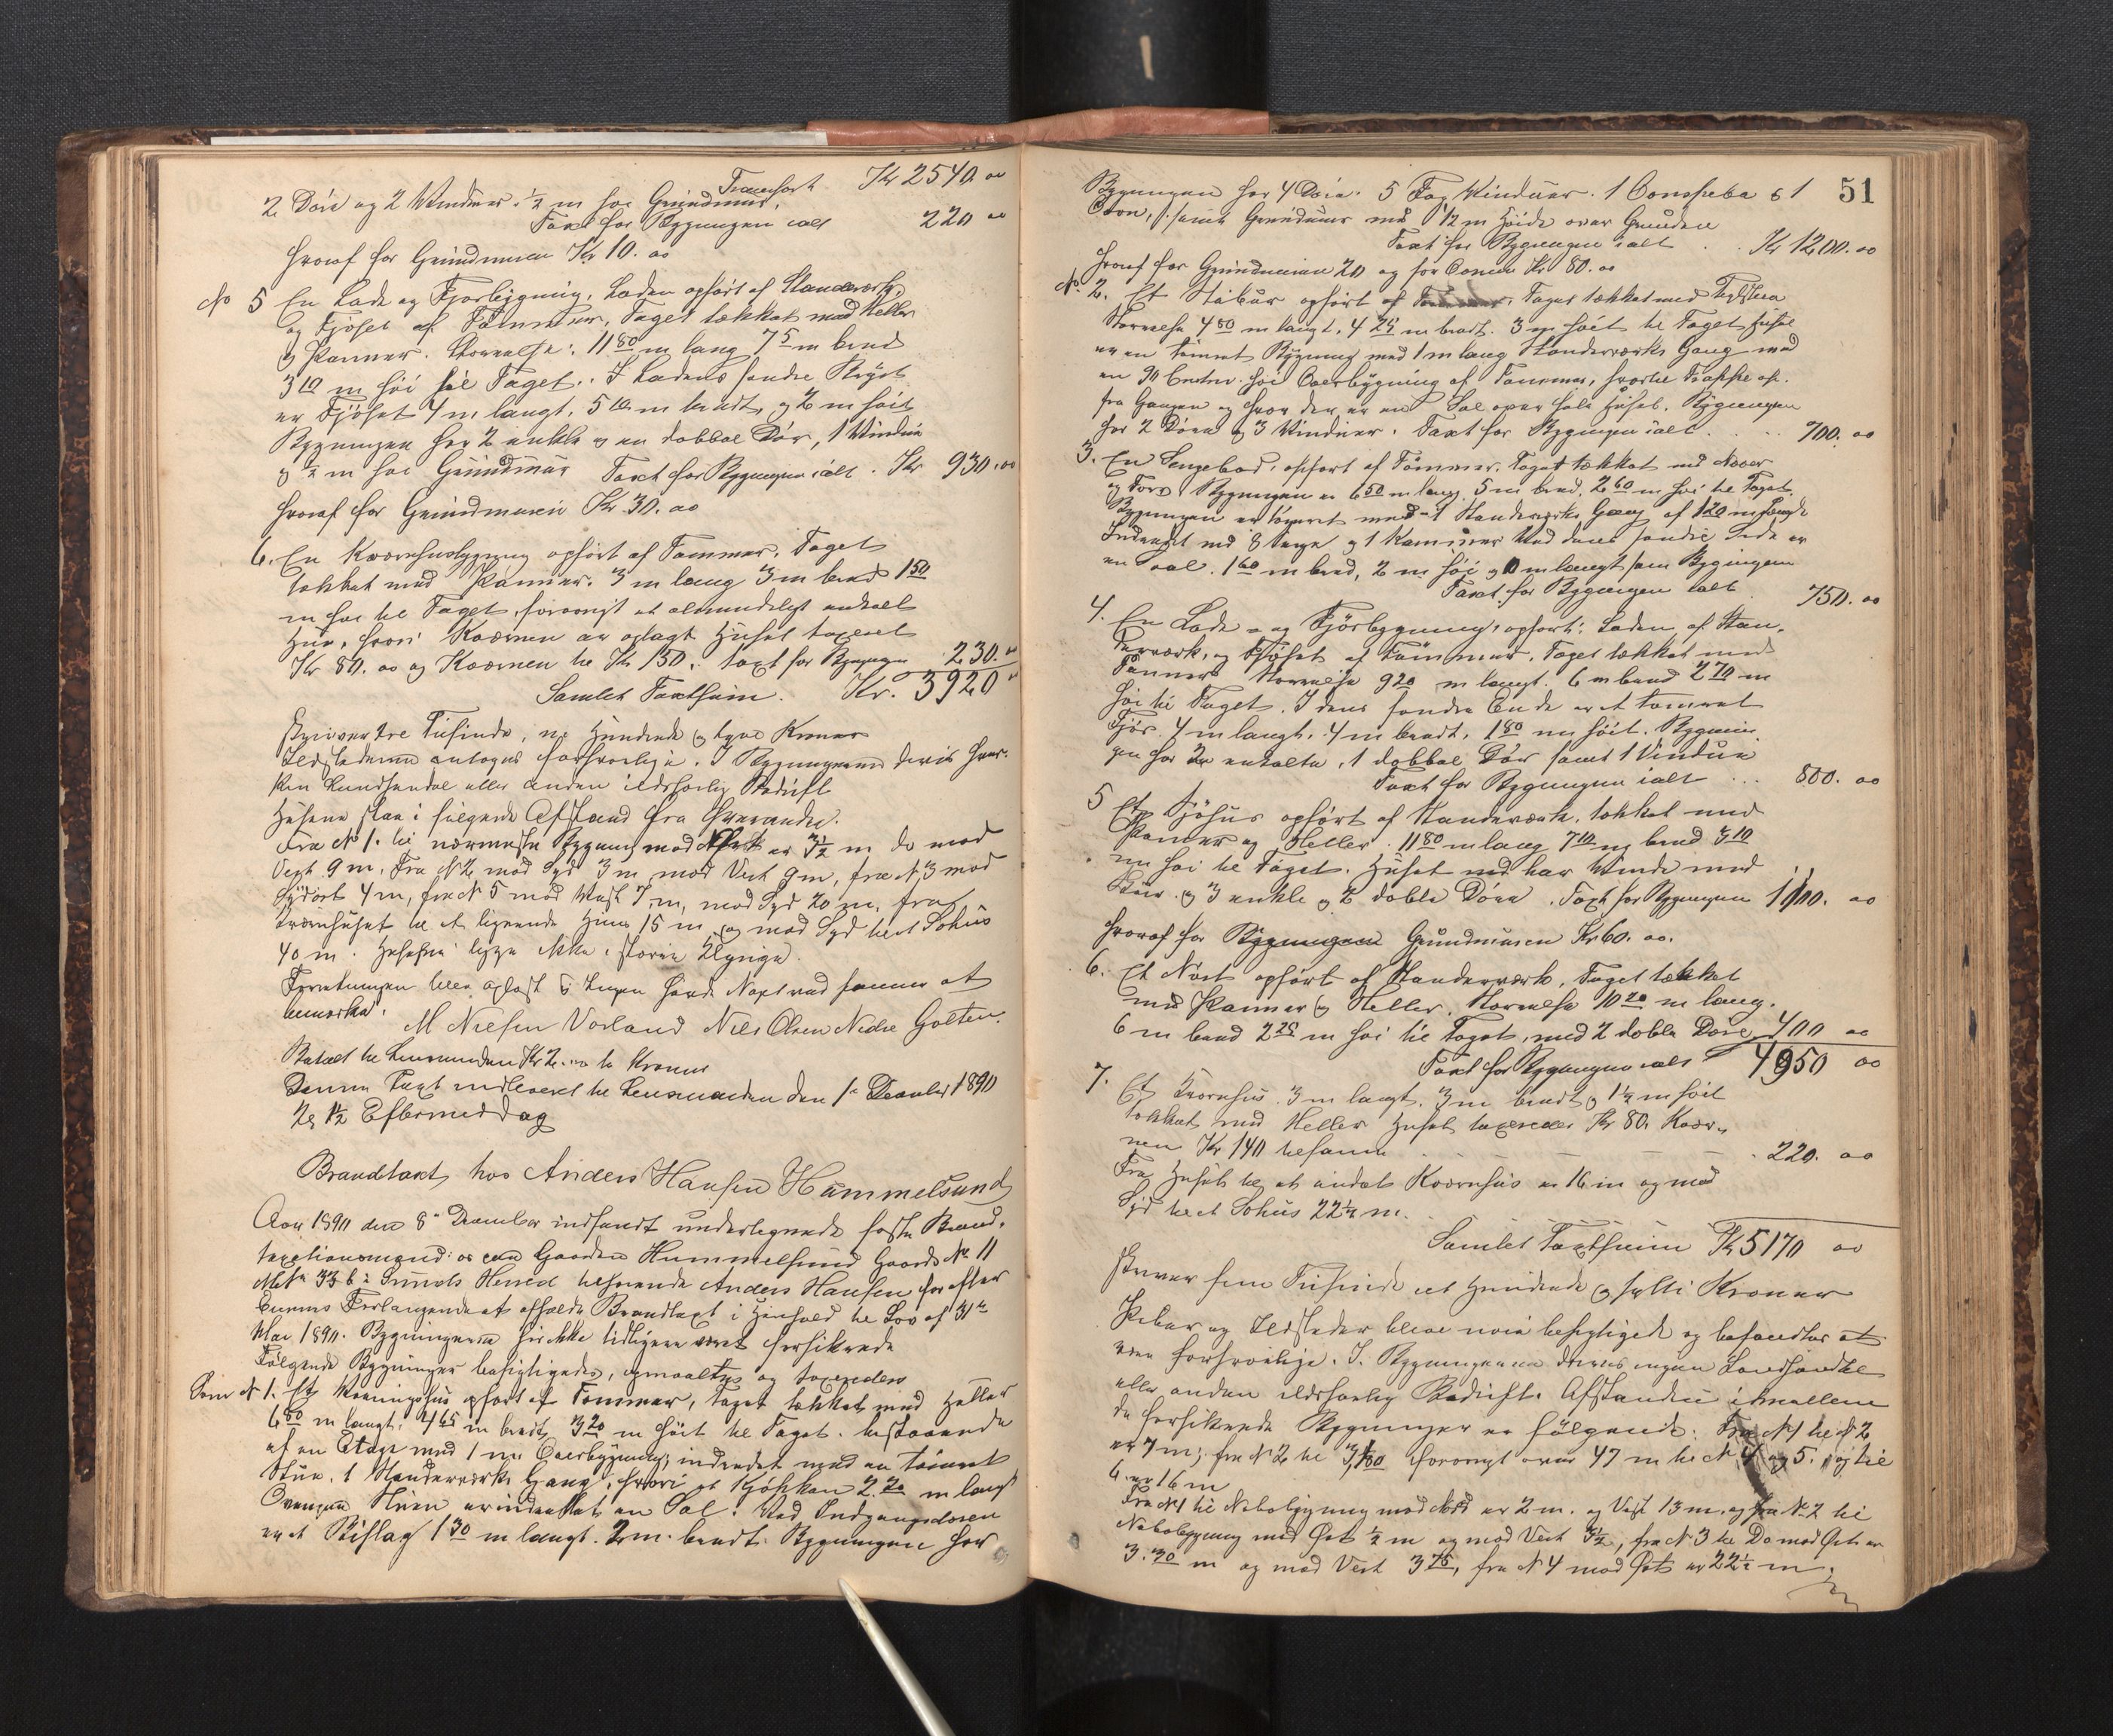 Transport Kr 2540. 00
2 Döre og 2 Vinduer. ½ m hoi Grundmur.
Taxt for Bygningen ialt 220 00
hvoraf for Grundmuren Kr 10. 00
No 5 En Lade og Fjosbygning, Laden opfört af Standværk,
og Fjöset af Tömmer, Taget tækket med Heller
og Panner. Storrelse: 11 80 m lang 7 5 m bred
3 10 m höi til Taget. I Ladens søndre
er Fjöset 4 m langt, 5 m bredt, og 2 m höit
Bygningen har 2 enkle og en dobbel Dör, 1 Vindu
og ½ m hoi Grundmur Taxt for Bygningen ialt . Kr 930. 00
hvoraf for Grundmuren Kr 30. 00
6. En Kværnhusbygning opfört af Tømmer. Taget
tækket med Panner. 3 m lang 3 m bred 1 50
m hoi til Taget, forøvrigt et almindeligt enkelt
Hus, hvori Kværnen er anlagt Huset taxeret
Kr 80. 00 og Kværnen til Kr 150. Taxt for Bygningen 230. 00
Samlet Taxtsum. Kr. 3920 00
Skriver tre Tusinde, ni Hundrede og tyve Kroner
Ildstederne antoges forsvarlige. I Bygningerne drives hver-
ken Landhandel eller anden ildsfarlig Bedrift
Husene staa i følgende Afstand fra hverandre.
Fra No 1. til nærmeste Bygning mod er 3½ m do mod
Vest 9 m, Fra N 2 mod Syd 3 m mod Vest 9 m, fra N 3 mod
Sydost 4 m, fra N 5 mod Vest 7 m, mod Syd 20 m, fra
Kværnhuset til et lignende Huus 15 m og mod Syd til et Sohus
40 m. Husene ligge ikke i større Klynge.
Forretningen blev oplæst og Ingen havde Noget ved samme at
bemærke.
M Nielsen Vorland Nils Olsen Nedre Golten.
Betalt til Lensmanden Kr 2. to Kroner
Denne Taxt indleveret til Lensmanden den 1ste December 1890
Kl ½ Eftermiddag
Brandtaxt hos Anders Hansen Hummelsund
Aar 1890 den 8de December indfandt undertegnede faste Brand-
taxtionsmænd os paa Gaarden Hummelsund Gaards No 11
Mtr 33 b i Sunds Herred tilhørende Anders Hansen for efter
Eierens Forlangende at afholde Brandtaxt i Henhold til Lov af 31te
Mai 1890. Bygningerne har ikke tidligere været forsikrede
Følgende Bygninger besigtigedes, opmaaltes og taxeredes
Som N 1. Et Vaaningshus opfört af Tømmer, taget tækket med Heller
6 80 m langt, 4 65 m bredt, 3 20 m höit til Taget. bestaaende
af en Etage med 1 m Overbygning; indredet med en tömret
Stue, 1 Standværks Gang, hvori et Kjökken 2. 20 m langt
Ovenpaa Stuen er indredet en Sal. Ved Indgangsdøren
er et Bislag 1 30 m langt. 2 m. bredt. Bygningen har
51
Bygningen har 4 Döre. 5 Fag Vinduer. 1 Ovn og 1
, samt Grundmur med ½ m Höide over Grunden
Taxt for Bygningen ialt . . Kr 1200. 00
hvoraf for Grundmuren 20 og for Ovnen Kr 80. 00
No. 2. Et Stabur opfört af Taget tækket med
Størrelse 4 80 m langt, 4 25 m bredt. 3 m höit til Taget Huset
er en tömret Bygning med 1 m lang Standværks Gang med
en 90 Centm. høi Overbygning af Tømmer, hvortil Trappe op
fra Gangen og hvor der er en Sal over hele Huset. Bygningen
har 2 Döre og 3 Vinduer. Taxt for Bygningen ialt . . . 700. 00
3. En Sengebod, opført af Tömmer. Taget tækket med Næver
og Torv. Bygningen er 6 50 m lang. 5 m bred. 2 60 m höi til Taget.
Bygningen er tömret med 1 Standværks Gang af 1 20 m Længde
Indredet med 8 Senge og 1 Kammer Ved dens søndre Side er
en Sval. 1 60 m bred, 2 m höi og m langt som Bygningen
Taxt for Bygningen ialt . 750. 00
4. En Lade og Fjösbygning, opfört: Laden af Stan-
derværk, og Fjöset af Tömmer. Taget tækket med
Panner Størrelse 9 20 m langt. 6 m bred 2 70 m
höi til Taget. I dens søndre Ende er et tømret
Fjös. 4 m langt. 4 m bredt, 1 80 m höit. Bygnin-
gen har 2 enkelte, 1 dobbel Dör samt 1 Vindue
Taxt for Bygningen ialt ... 800. 00
5 Et Sjöhus opfört af Standværk, tækket med
Panner og Heller. 11 80 m lang 7 10 m bred 3 10
m hoi til Taget. Huset har Vinde med
og 3 enkle og 2 doble Döre. Taxt for Bygningen 1100. 00
hvoraf for Bygningen Grundmuren Kr 60. 00.
6. Et Nöst opfört af Standerværk. Taget tækket
med Panner og Heller. Storrelse 10 20 m lang.
6 m bred 2 25 m höi til Taget, med 2 doble Döre 400 00
Taxt for Bygningen ialt 4950 00
7. Et Kværnhus. 3 m langt. 3 m bredt og 1½ m höit
tækket med Heller Huset taxeredes Kr 80. Kvær-
nen Kr 140 tilsammen . . . 220. 00
Fra Huset til et andet Kværnhus er 16 m og mod
Syd til et Sohus 22½ m.
Samlet Taxtsum Kr 5170 00
skriver fem Tusinde et Hundrede og sytti Kroner
Piber og Ildsteder bleve nøie besigtigede og befandtes at
være forsvarlige. I Bygningerne drives ingen Landhandel
eller anden ildsfarlig Bedrift. Afstanden imellem
de forsikrede Bygninger er fölgende: Fra N 1 til N 2
er 7 m; fra N 2 til 3, forøvrigt over 47 m til N 4 og 5. og til
6 er 16 m
Fra N 1 til Nabobygning mod Nord er 2 m. og Vest 13 m. og fra No 2 til
Nabobygning mod Øst ½ m og mod Vest 3½, fra N 3 til Do mod Øst er
3. 30 m og mod Vest 3 75, fra N 4 mod Øst er 22½ m,